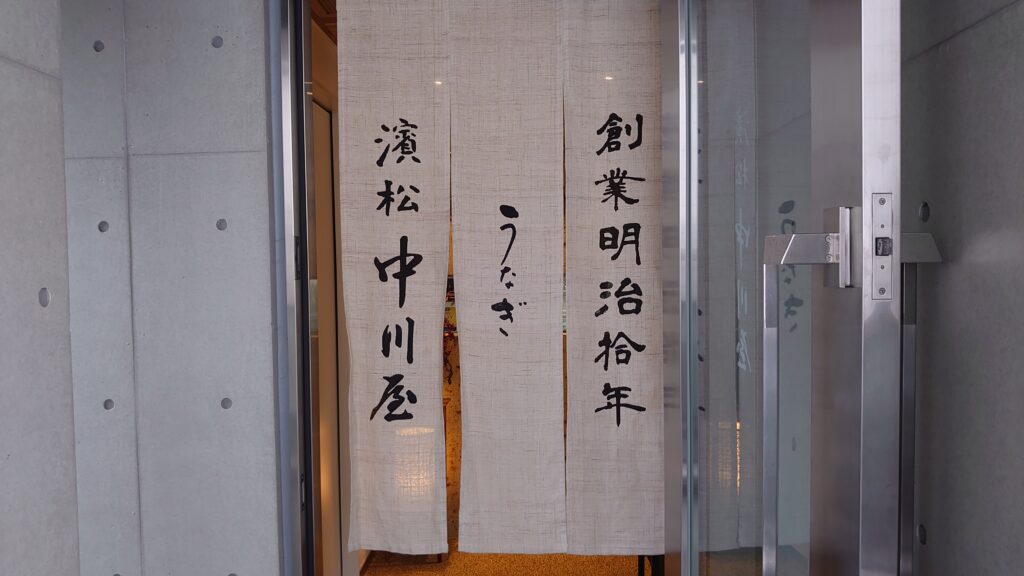 創業明治拾年
うなぎ
濱松中川屋